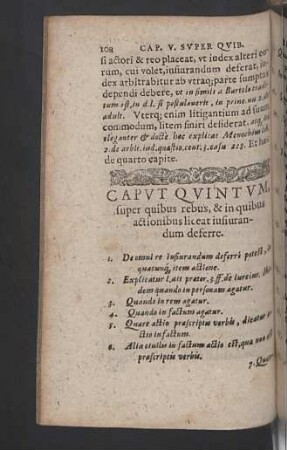 108 CAP. V. SVPER QVIB.
si actori & reo placeat, vt iudex alteri eo-
rum, cui volet, iusiurandum deferat, iu-
dex arbitrabitur ab vtraq; parte sumptus
dependi debere, vt in simili a Bartolo tradi-
tum est, in d.l. si postulauerit, in prine. nu. 2.
adult. Vterq; enim litigantium ad suum
commodum, litem finiri desiderat. atq;
eleganter & docte hæc explicat Menochius
2. de arbit. iud. quæstio. cent. 3. casu 213. Et hæc
de quarto capite.
CAPVT QVINTVM,
super quibus rebus, & in quibus
actionibus liceat iusiuran-
dum deferre.
1. De omni re iusiurandum deferri potest,
quatunq, item actione.
2. Explicatur l. ait prætor. 3. ff. de iureiur.
dem quando in personam agatur.
3. Quando in rem agatur.
4. Quando in factum agatur.
5. Quare actio præscriptis verbis, dicatur a-
ctio in factum.
6. Alia vtilis in factum actio est, qua non est
præscriptis verbis.
7. Quare